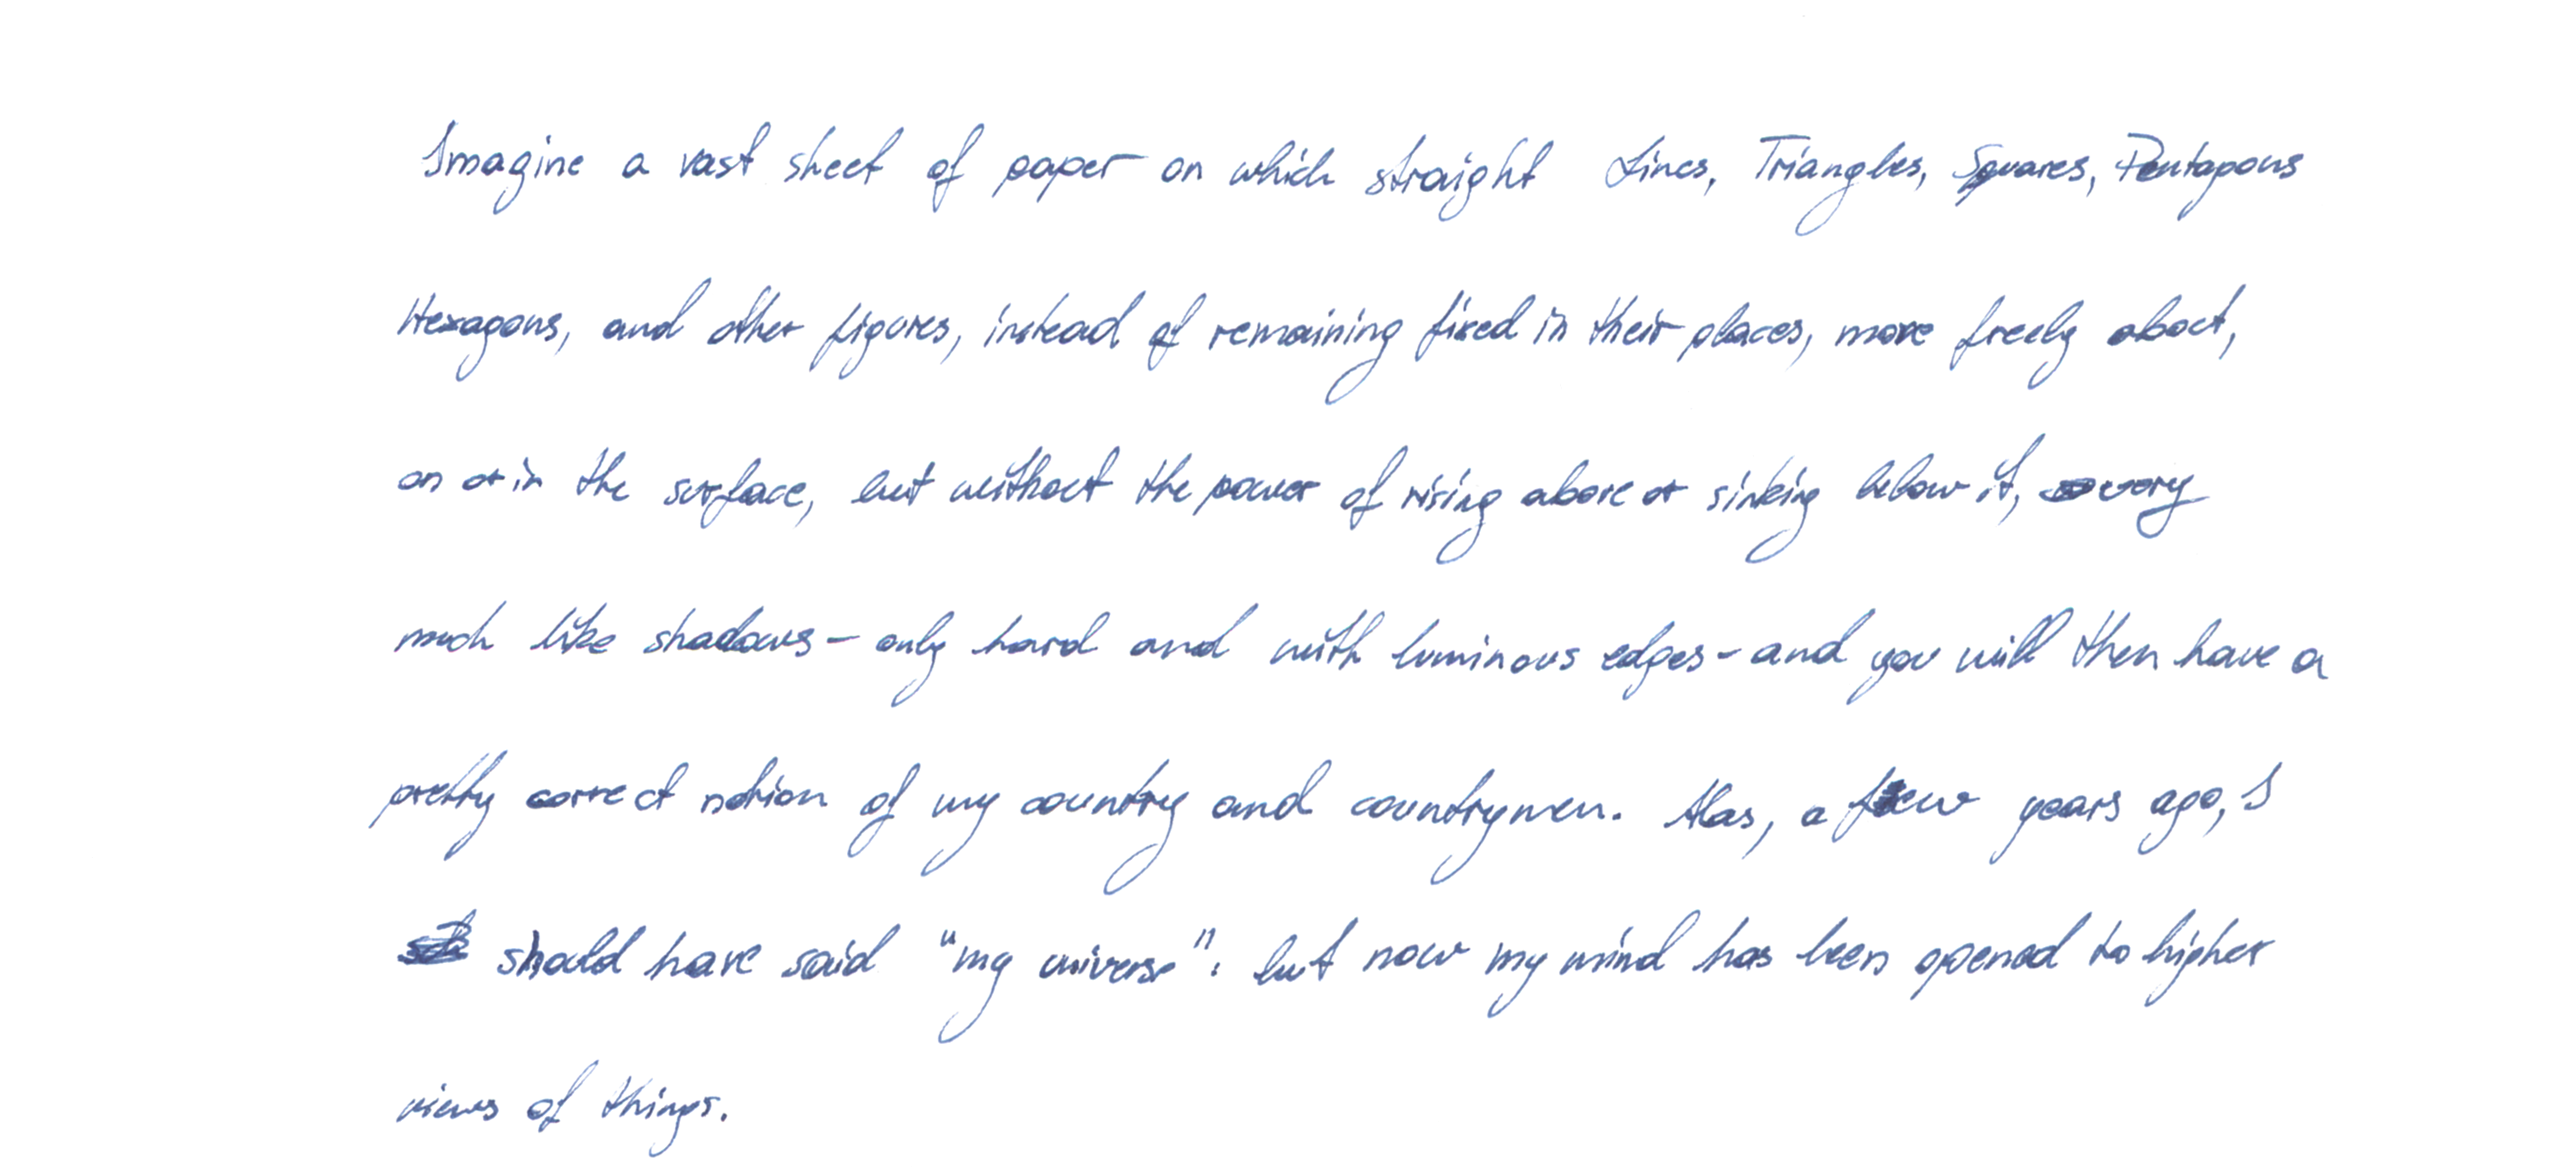 Imagine a vast sheet of paper on which straight Lines, Triangles, Squares, Pentagons
Hexagons, and other figures, instead of remaining fixed in their places, move freely about,
on or in the surface, but without the power of rising above or sinking below it, very
much like shadows - only hard and with luminous edges - and you will then have a
pretty correct notion of my country and countrymen. Alas, a few years ago, I
should have said "my universe": but now my mind has been opened to higher
views of things.